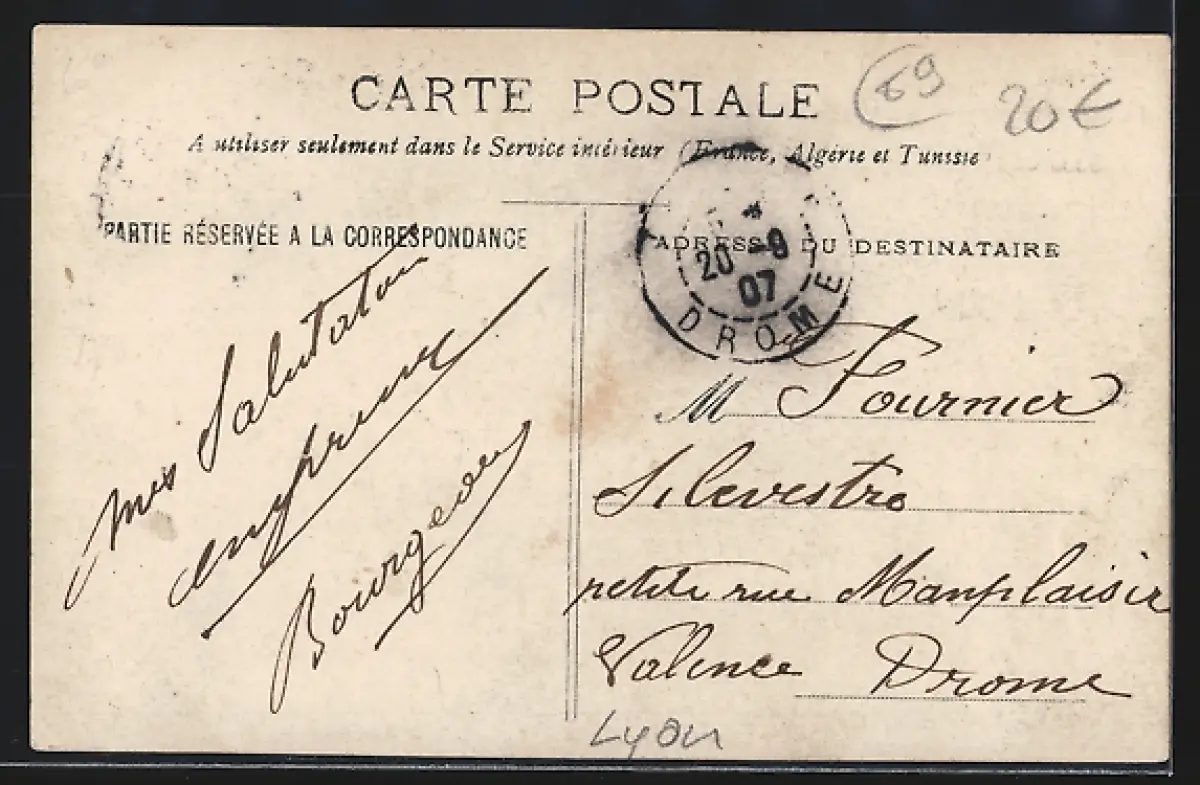 CARTE POSTALE
69
20€
A utiliser seulement dans le Service intérieur (France, Algérie et Tunisie)
PARTIE RÉSERVÉE A LA CORRESPONDANCE
ADRESSE DU DESTINATAIRE
20 -9
07
DROME
mes Salutation
Bourgeon
M Fournier
Silevestre
petite rue Manplaisir
Valence Drome
Lyon